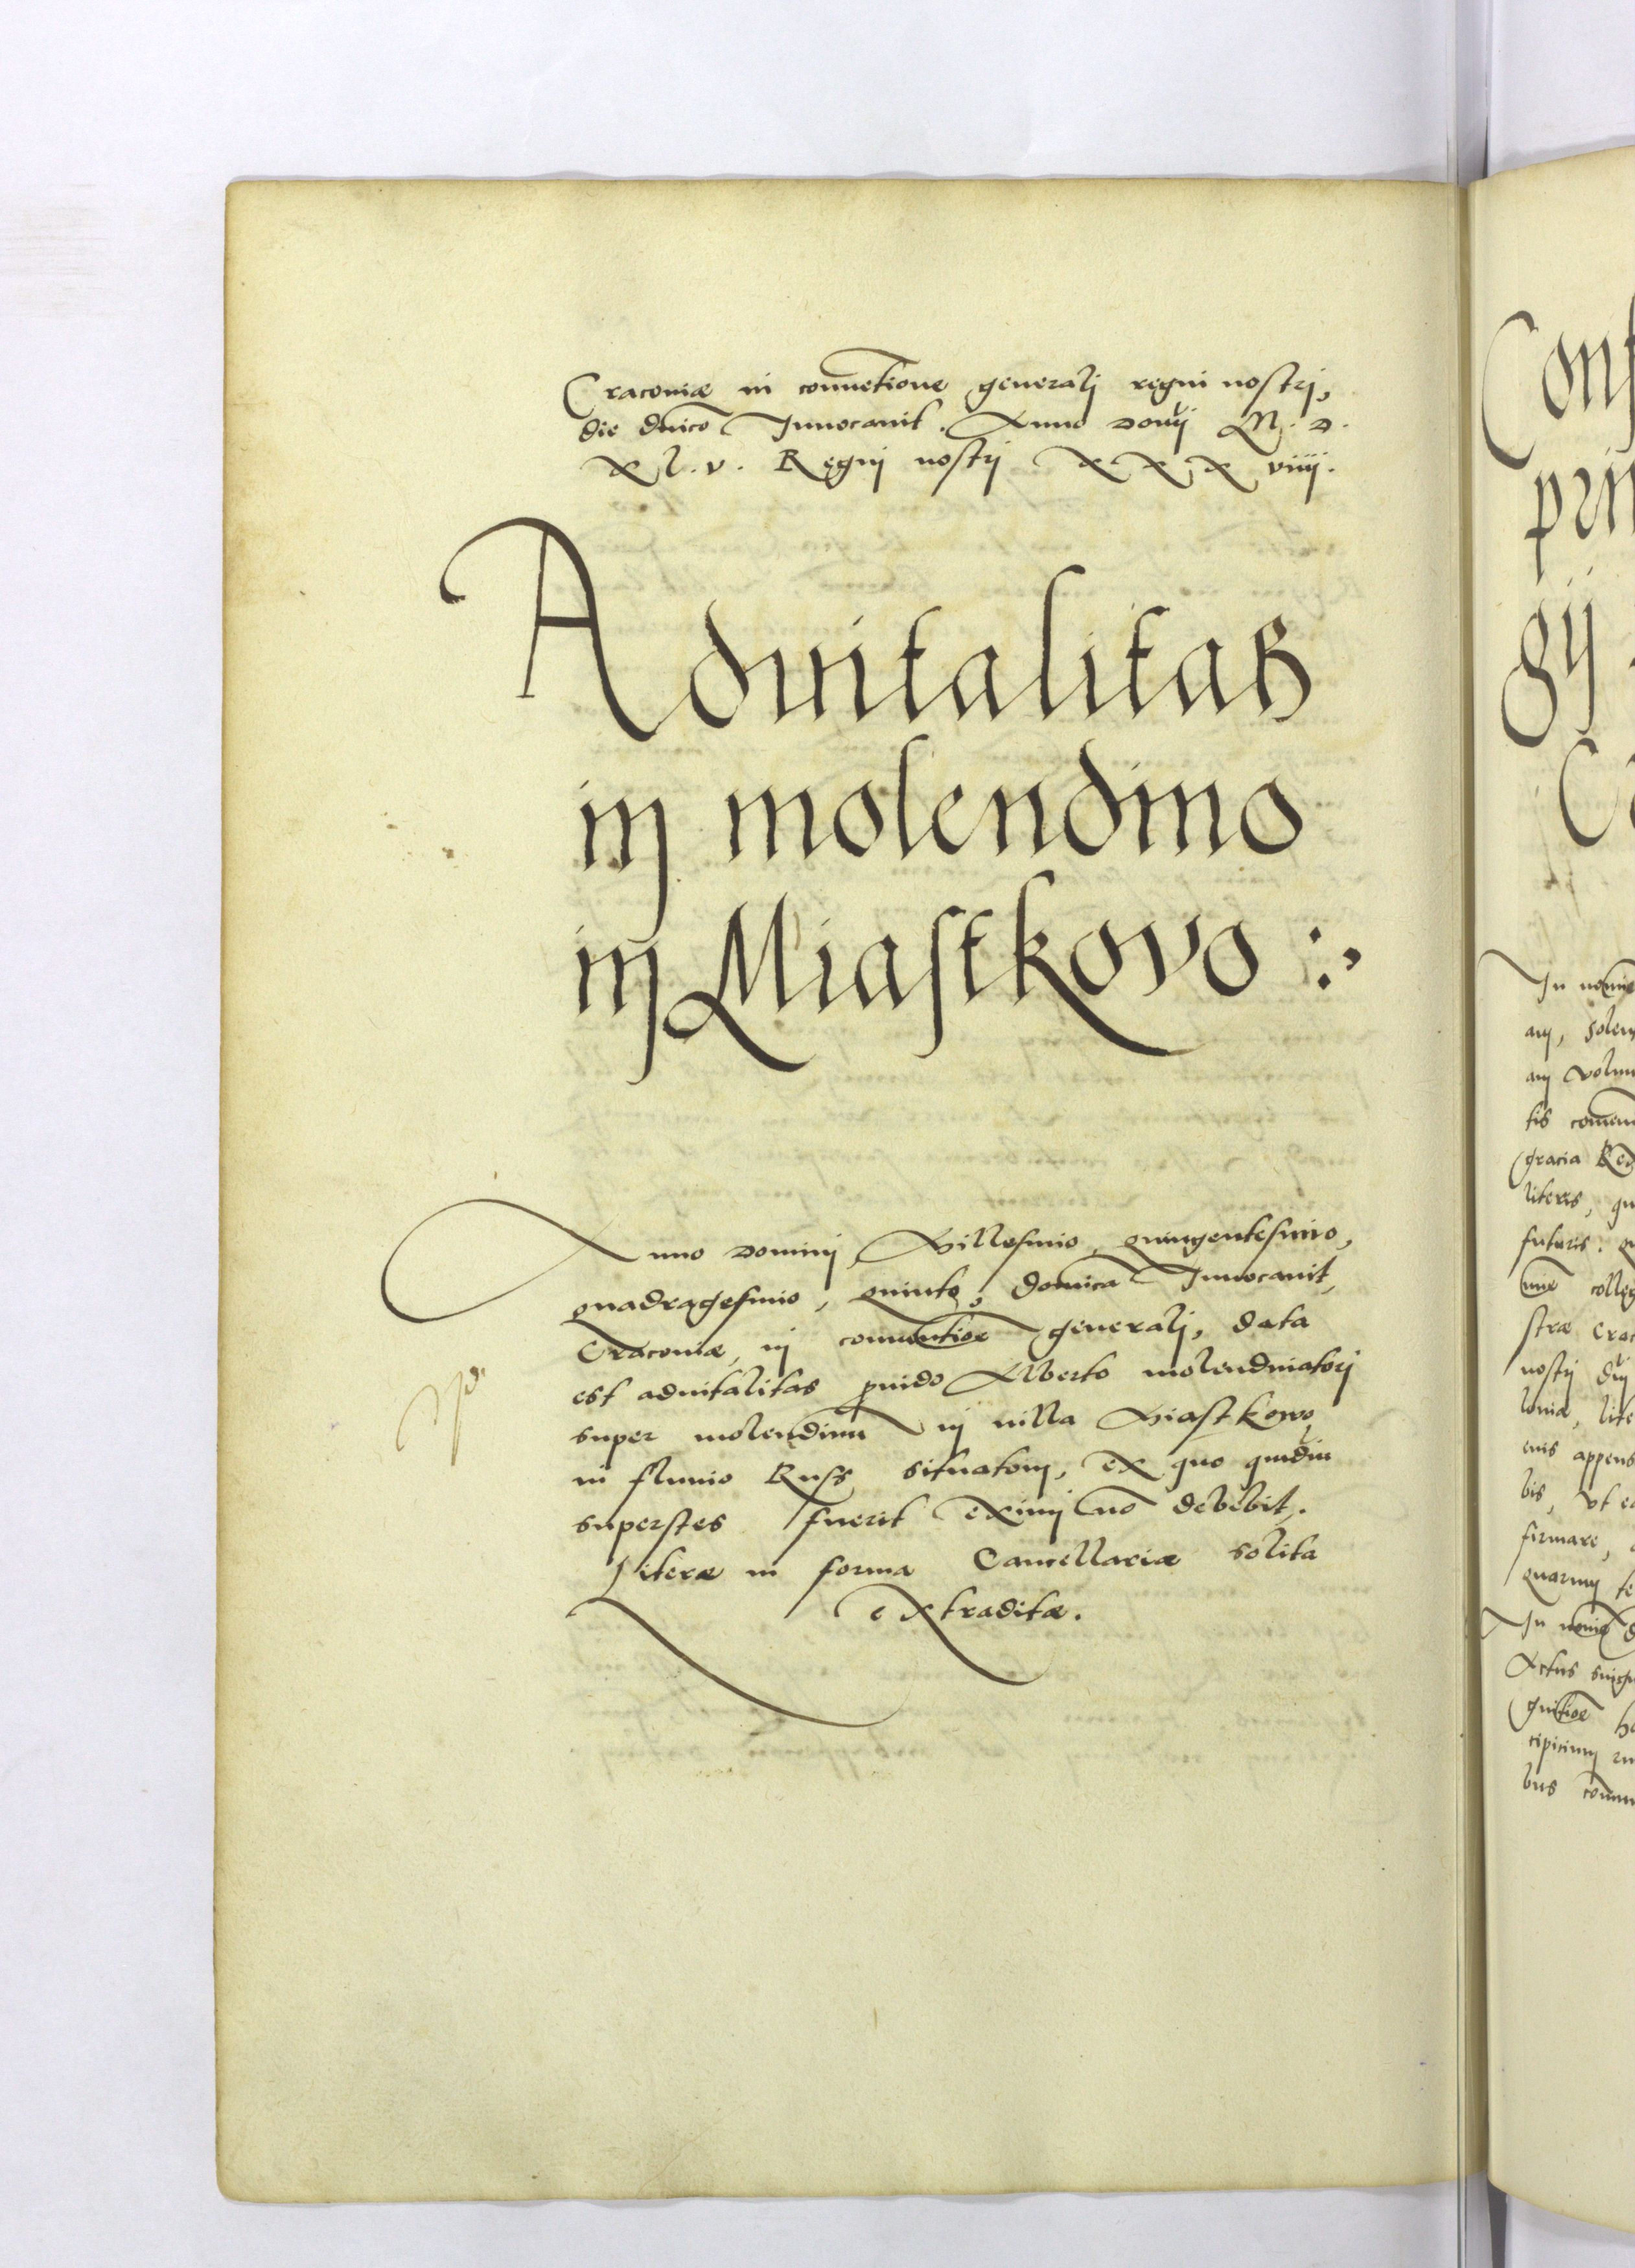 Cracouiæ in conuẽtione generalj regni nostrj,
die dnico Inuocauit. Anno Domj M. D.
X l. v. Regnj nostrj X X X viiij.
Aduitalitas
in molendino
in Miastkovo :,
Anno Dominj Millesimo, quingentesimo,
quadragesimo, quinto, domica Inuocauit,
Cracouiæ, in conuentioe generalj, data
est aduitalitas ꝓuido Alberto molendinatorj
super molendinũ in uilla Miastkowo
in fluuio Russ situatom, ex quo quãdiu
superstes fuerit eximj nõ debebit.
Literæ in forma Cancellariæ solita
extraditæ.
Conf
prin
gij
In nomine
am, solem
am volun
tis comen
gracia Re
literis, qu
futuris. q
colleg
stræ Crac
nostrj
lonia, lite
eius appens
bis, vt ea
firmare,
quarum te
In nomie d
Actus
ho
bus comun